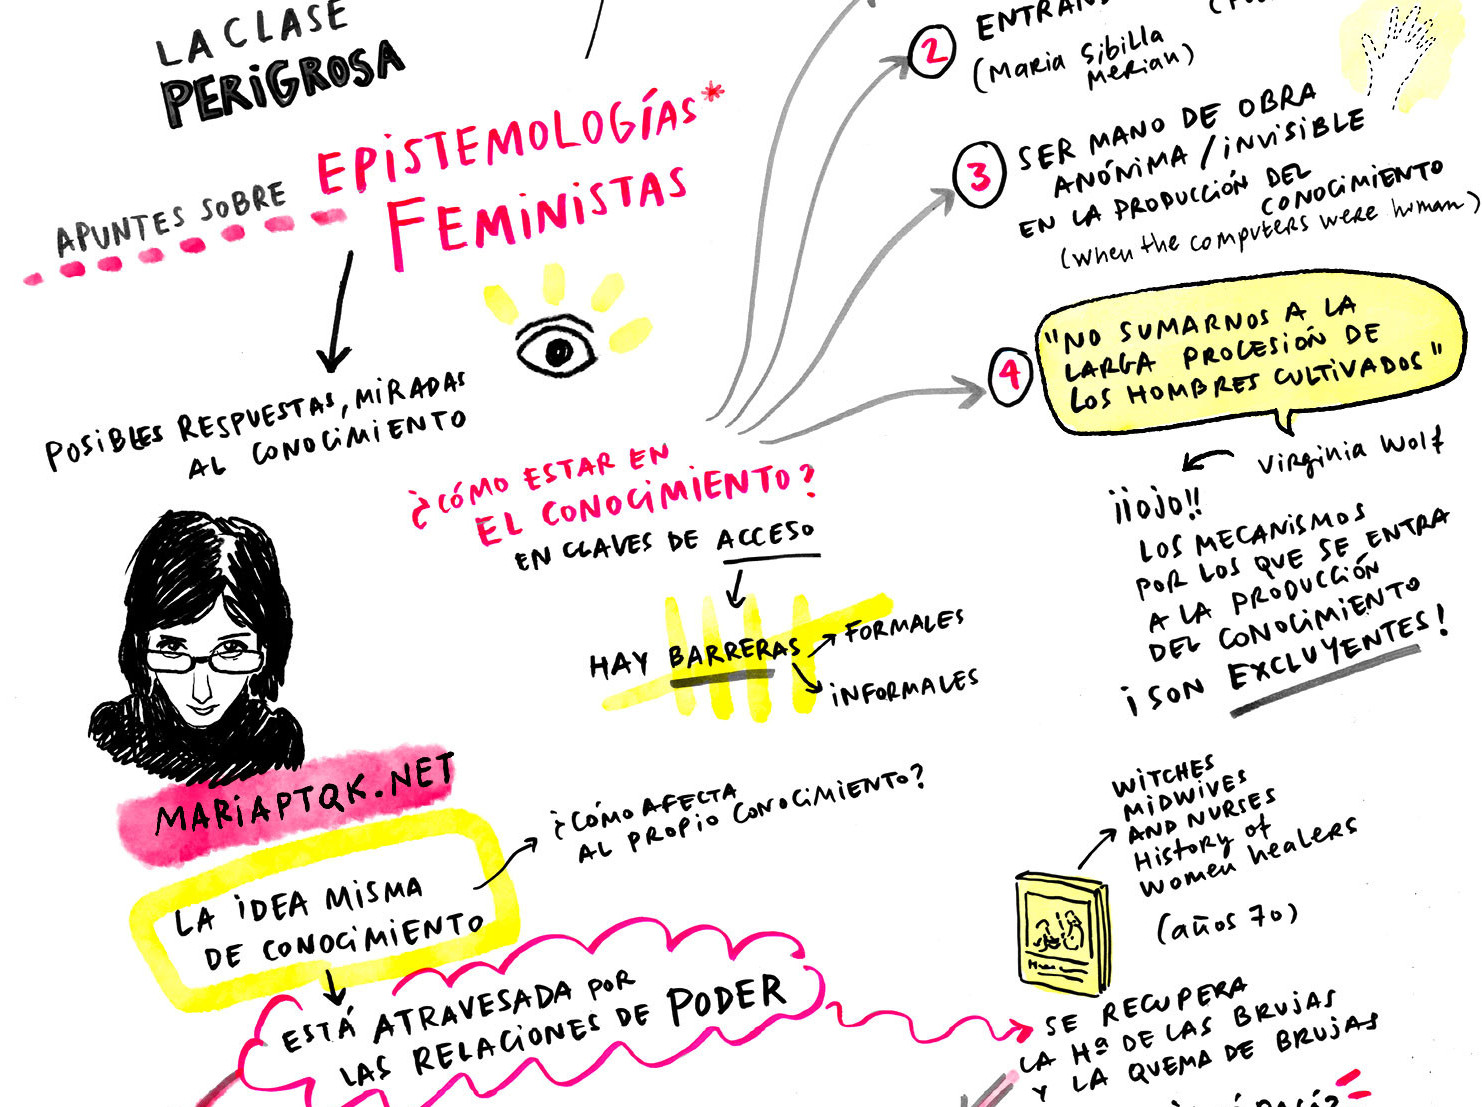 LA CLASE
PERIGROSA
APUNTES SOBRE EPISTEMOLOGÍAS*
FEMINISTAS
POSIBLES RESPUESTAS, MIRADAS
AL CONOCIMIENTO
MARIAPTQK.NET
LA IDEA MISMA
DE CONOCIMIENTO
¿CÓMO AFECTA
AL PROPIO CONOCIMIENTO?
ESTÁ ATRAVESADA POR
LAS RELACIONES DE PODER
¿CÓMO ESTAR EN
EL CONOCIMIENTO?
EN CLAVES DE ACCESO
HAY BARRERAS
FORMALES
INFORMALES
2
(MARIA SIBILLA
MERIAN)
3
SER MANO DE OBRA
ANÓNIMA / INVISIBLE
EN LA PRODUCCIÓN DEL
CONOCIMIENTO
(when the computers were human)
4
"NO SUMARNOS A LA
LARGA PROCESIÓN DE
LOS HOMBRES CULTIVADOS"
Virginia Wolf
¡¡OJO!!
LOS MECANISMOS
POR LOS QUE SE ENTRA
A LA PRODUCCIÓN
DEL CONOCIMIENTO
¡SON EXCLUYENTES!
WITCHES
MIDWIVES
AND NURSES
History of
women healers
(años 70)
SE RECUPERA
LA Hª DE LAS BRUJAS
Y LA QUEMA DE BRUJAS